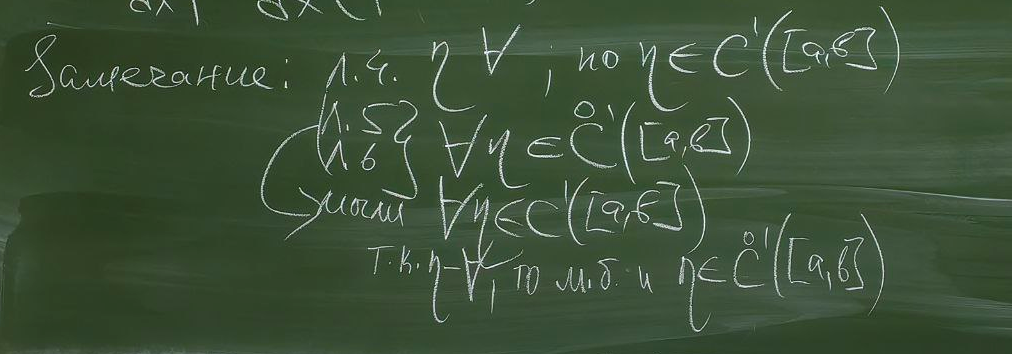 Замечание: 1.4. η ∀, но η ∈ C¹([a,b])
1.5
1.6 } ∀η ∈ C̊¹([a,b])
∀η ∈ C¹([a,b])
т.к. η-∀, то м.б. и η ∈ C̊¹([a,b])